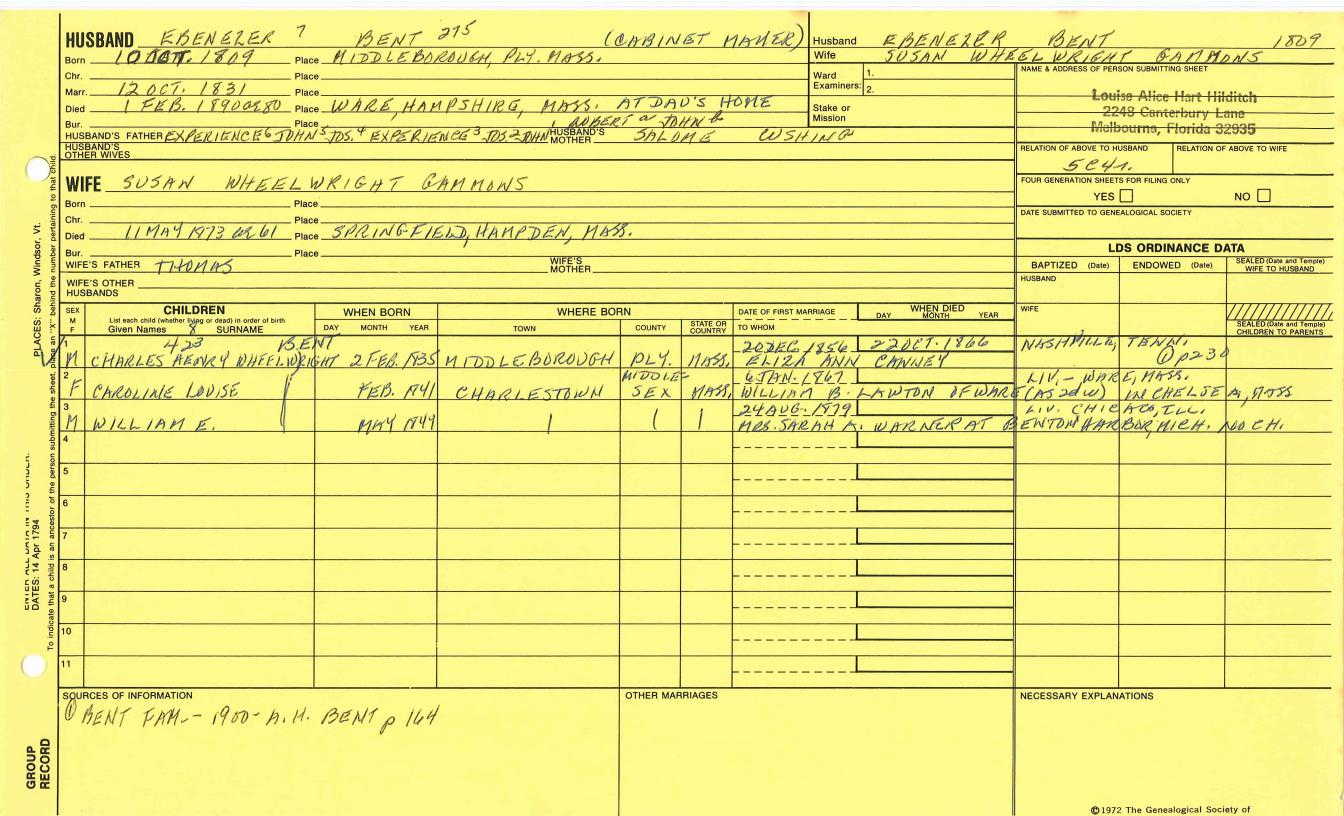 HUSBAND EBENEZER 7 BENT 275 (CABINET MAKER)
Born 10 OCT. 1809 Place MIDDLEBOROUGH, PLY. MASS.
Chr. Place
Marr. 12 OCT. 1831 Place
Died 1 FEB. 1890 or 80 Place WARE, HAMPSHIRE, MASS. AT DAU'S HOME
Bur. Place 1 ROBERT a JOHN b
HUSBAND'S FATHER EXPERIENCE 6 JOHN 5 JOS. 4 EXPERIENCE 3 JOS. 2 JOHN HUSBAND'S MOTHER SALOME CUSHING
HUSBAND'S OTHER WIVES
Husband EBENEZER BENT 1809
Wife SUSAN WHEELWRIGHT GAMMONS
Ward Examiners: 1.
2.
Stake or Mission
NAME & ADDRESS OF PERSON SUBMITTING SHEET
Louise Alice Hart Hilditch
2248 Canterbury Lane
Melbourne, Florida 32935
RELATION OF ABOVE TO HUSBAND RELATION OF ABOVE TO WIFE
5C4r.
FOUR GENERATION SHEETS FOR FILING ONLY
YES NO
DATE SUBMITTED TO GENEALOGICAL SOCIETY
WIFE SUSAN WHEELWRIGHT GAMMONS
Born Place
Chr. Place
Died 11 MAY 1873 or 61 Place SPRINGFIELD, HAMPDEN, MASS.
Bur. Place
WIFE'S FATHER THOMAS WIFE'S MOTHER
WIFE'S OTHER HUSBANDS
LDS ORDINANCE DATA
BAPTIZED (Date) ENDOWED (Date) SEALED (Date and Temple) WIFE TO HUSBAND
HUSBAND
WIFE
SEALED (Date and Temple) CHILDREN TO PARENTS
SEX M F
CHILDREN
List each child (whether living or dead) in order of birth
Given Names 8 SURNAME
WHEN BORN
DAY MONTH YEAR
WHERE BORN
TOWN COUNTY STATE OR COUNTRY
DATE OF FIRST MARRIAGE
TO WHOM
WHEN DIED
DAY MONTH YEAR
1 423 BENT 20 DEC. 1856 22 OCT. 1866 NASHVILLE, TENN.
M CHARLES HENRY WHEELWRIGHT 2 FEB. 1835 MIDDLEBOROUGH PLY. MASS. ELIZA ANN CANNEY ① p230
2 MIDDLE- 6 JAN. 1867 LIV. - WARE, MASS.
F CAROLINE LOUISE FEB. 1841 CHARLESTOWN SEX MASS. WILLIAM B. LAWTON OF WARE (AS 2d W) IN CHELSEA, MASS
3 24 AUG. 1879 LIV. CHICAGO, ILL.
M WILLIAM E. MAY 1849 MRS. SARAH A. WARNER AT BENTON HARBOR, MICH. NO CH.
4
5
6
7
8
9
10
11
SOURCES OF INFORMATION
① BENT FAM. - 1900 - A.H. BENT p 164
OTHER MARRIAGES
NECESSARY EXPLANATIONS
©1972 The Genealogical Society of
PLACES: Sharon, Windsor, Vt.
To indicate that a child is an ancestor of the person submitting the sheet, place an "X" behind the number pertaining to that child.
ENTER ALL DATA IN THIS ORDER:
DATES: 14 Apr 1794
GROUP RECORD